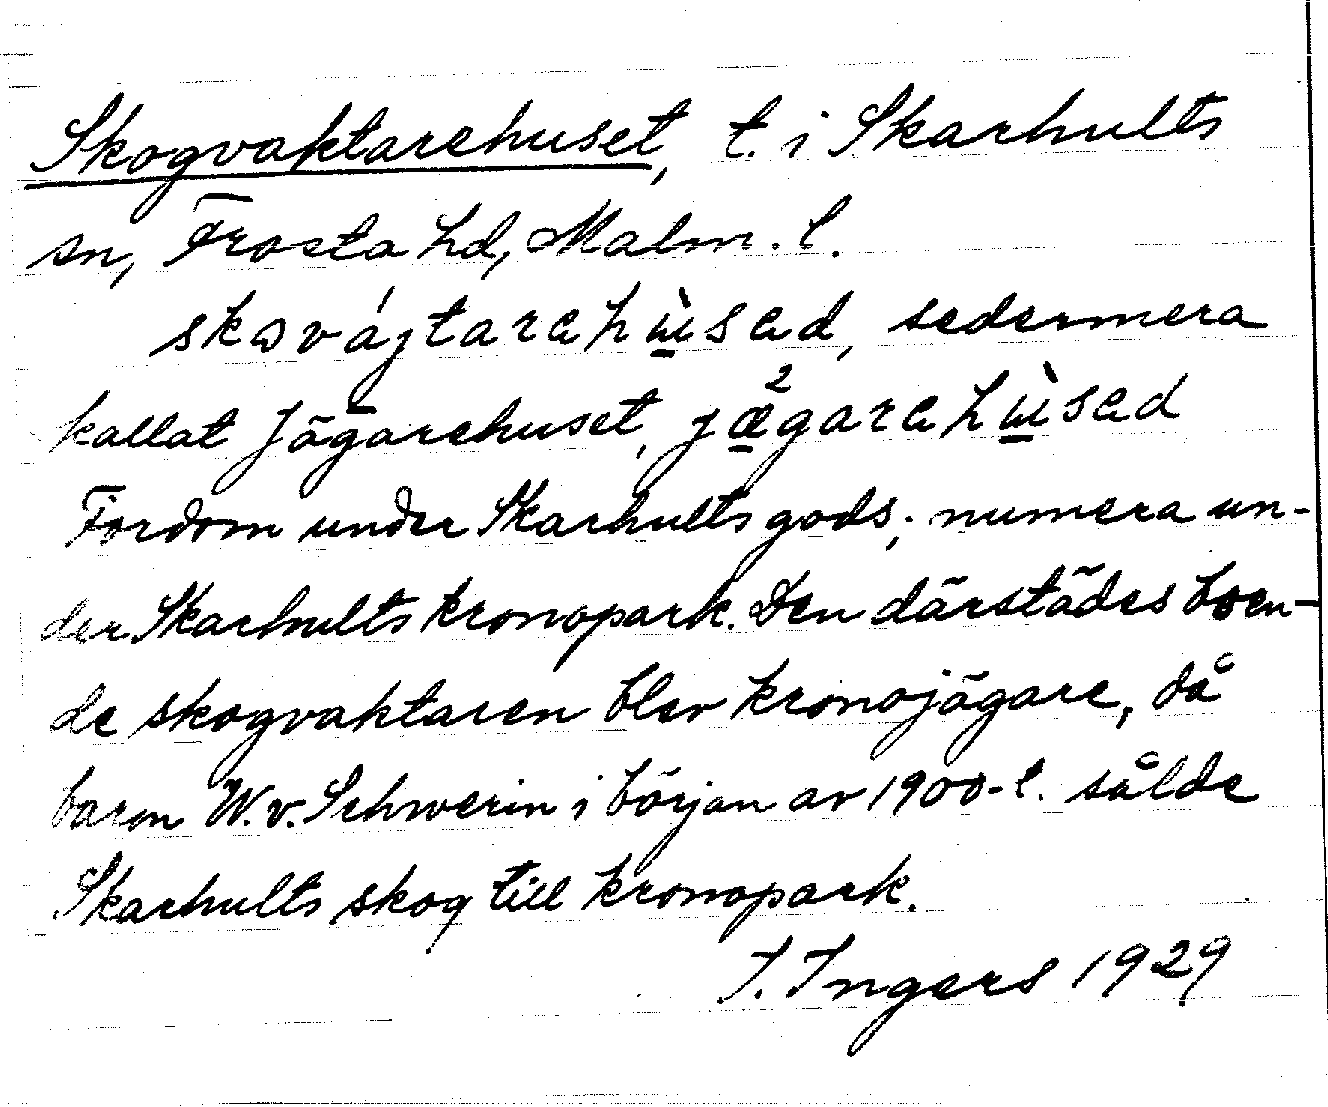 Skogvaktarehuset, t. i Skarhults
sn, Frosta hd, Malm. l.
skɷvájtarehùsed, sedermera
kallat Jägarehuset, jæ̠²garehùsed
Fordom under Skarhults gods; numera un-
der Skarhults kronopark. Den därstädes boen-
de skogvaktaren blev kronojägare, då
baron W. v. Schwerin i början av 1900-l. sålde
Skarhults skog till kronopark.
I. Ingers 1929